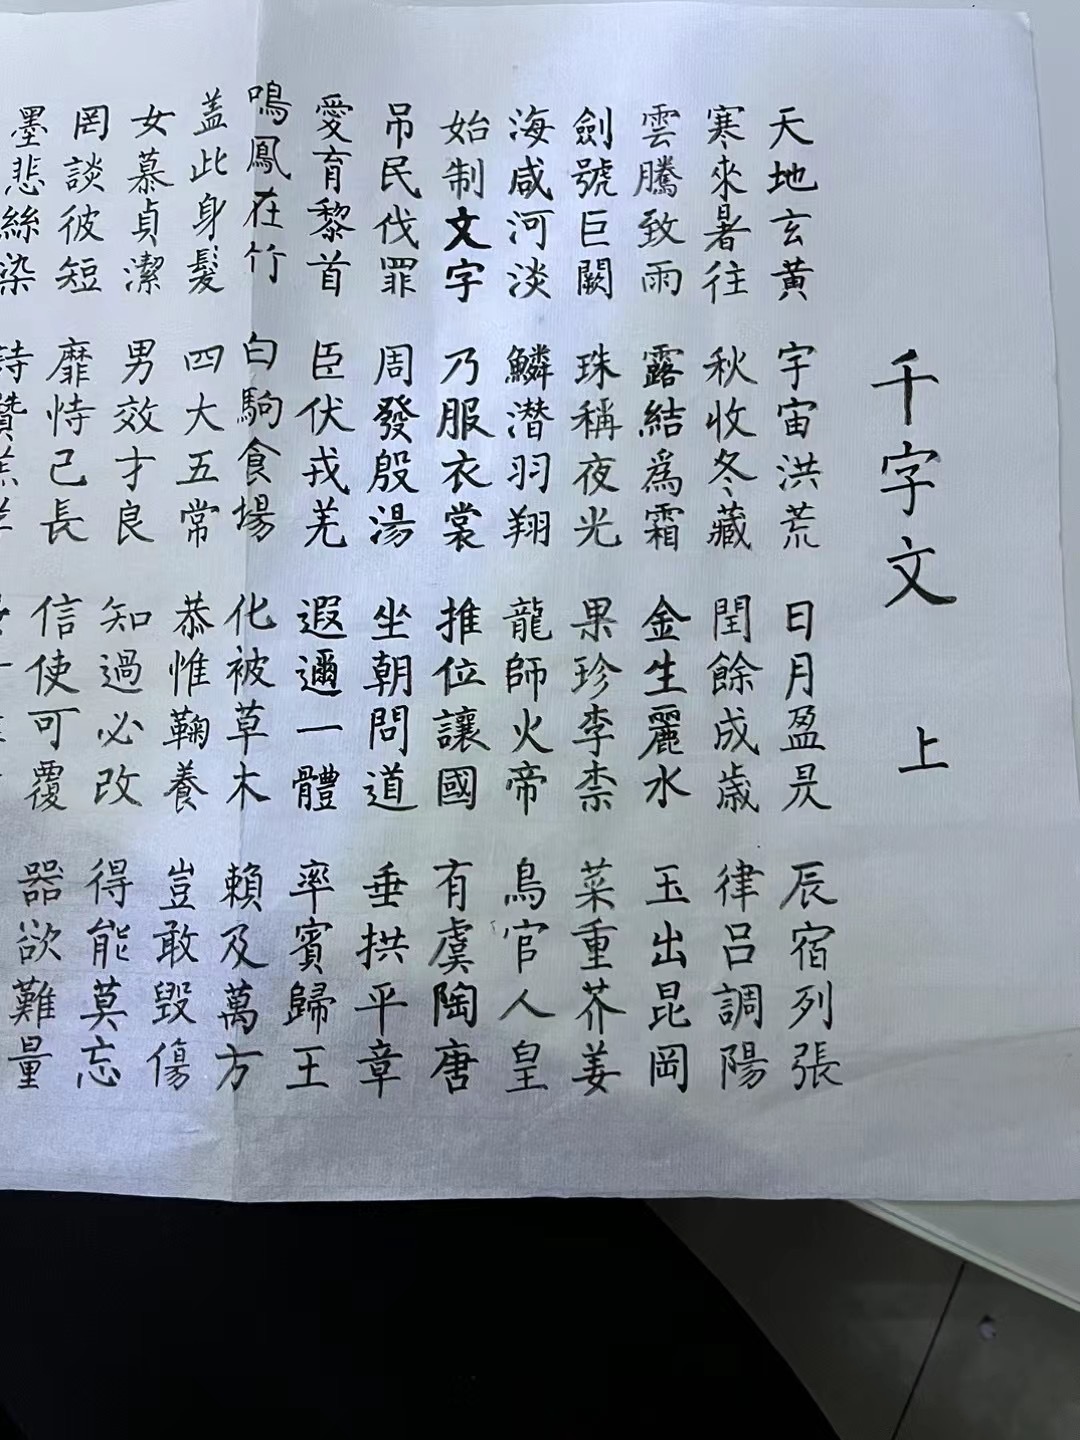 千字文 上
天地玄黃 宇宙洪荒 日月盈昃 辰宿列張
寒來暑往 秋收冬藏 閏餘成歳 律呂調陽
雲騰致雨 露結爲霜 金生麗水 玉出昆岡
劍號巨闕 珠稱夜光 果珍李柰 菜重芥姜
海咸河淡 鱗潜羽翔 龍師火帝 鳥官人皇
始制文字 乃服衣裳 推位讓國 有虞陶唐
吊民伐罪 周發殷湯 坐朝問道 垂拱平章
愛育黎首 臣伏戎羌 遐邇一體 率賓歸王
鳴鳳在竹 白駒食場 化被草木 賴及萬方
盖此身髮 四大五常 恭惟鞠養 豈敢毀傷
女慕貞潔 男效才良 知過必改 得能莫忘
罔談彼短 靡恃己長 信使可覆 器欲難量
墨悲絲染